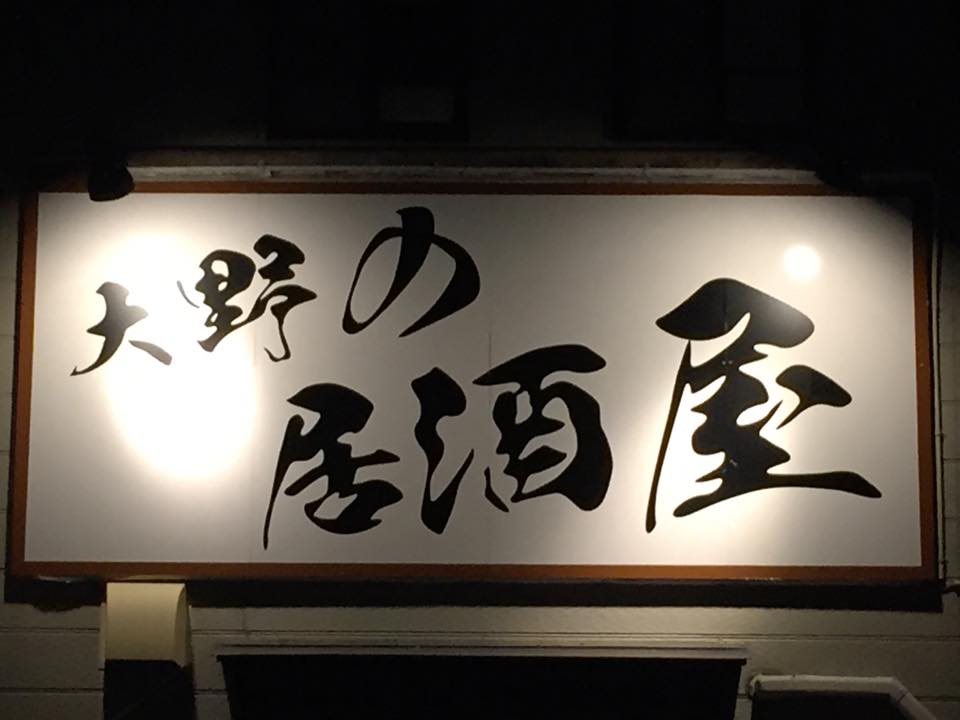 大野の
居酒屋